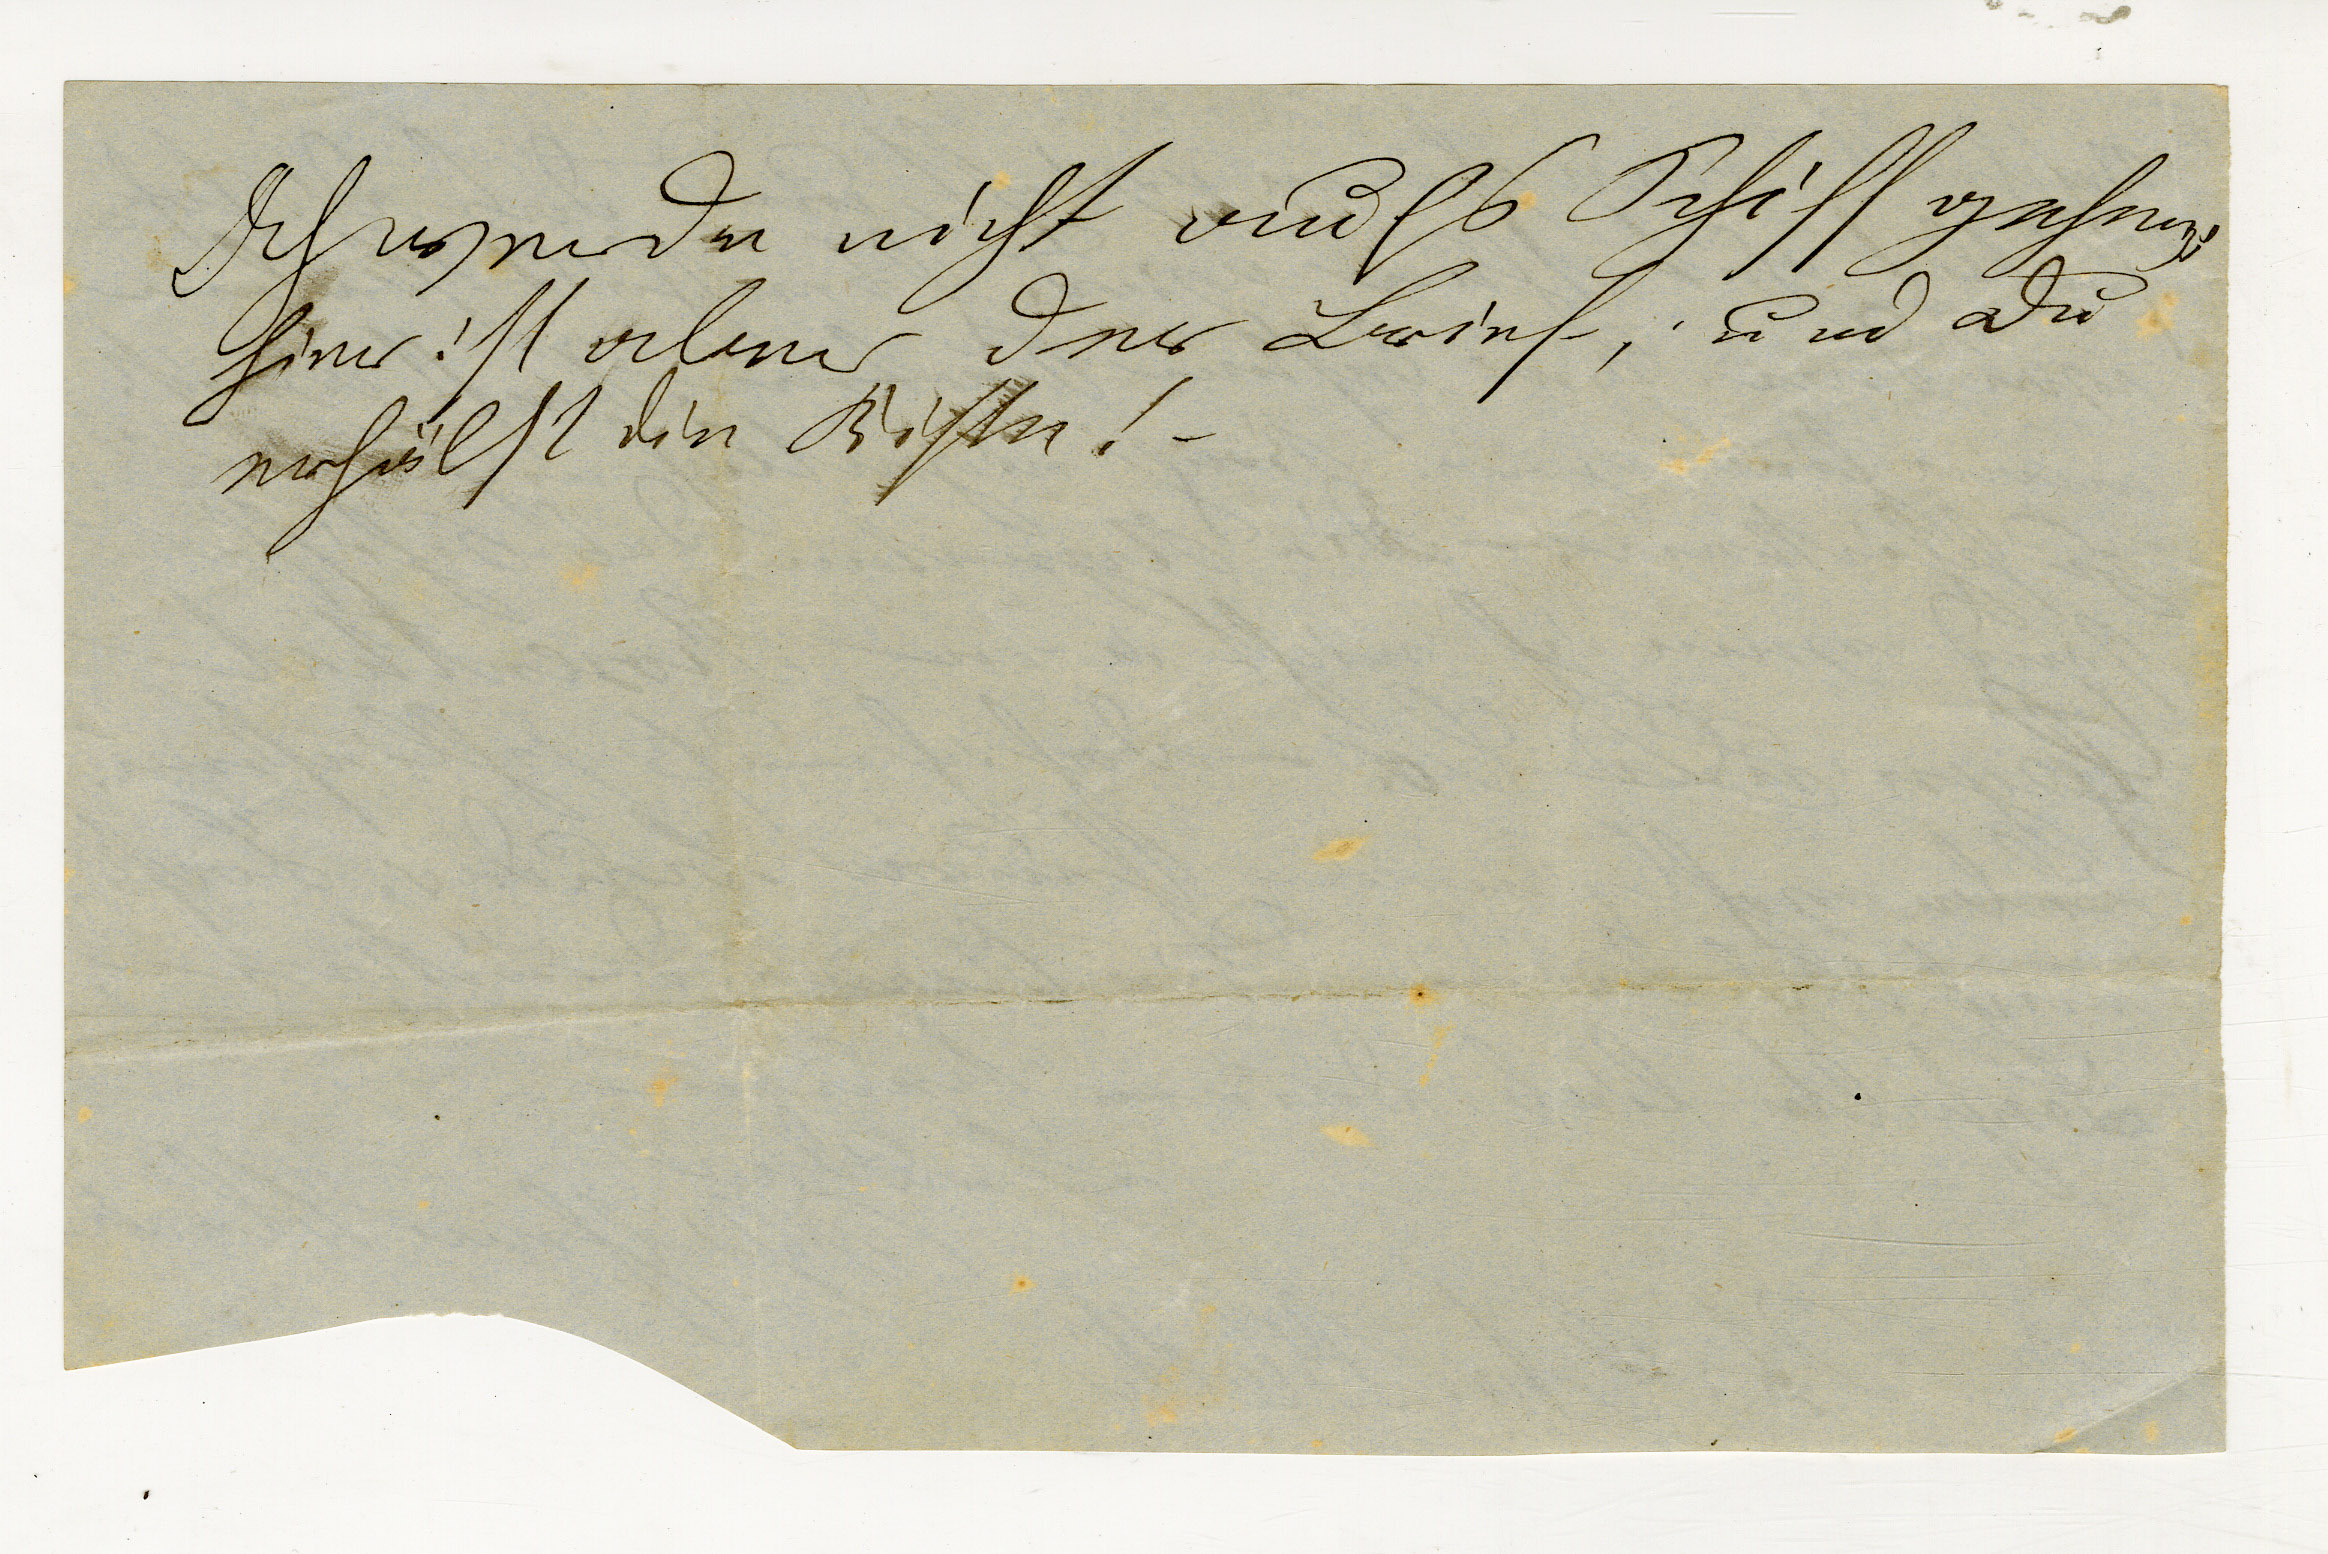 Ich werde nicht aufs Schiff gehen;
hier ist aber der Brief, und Du
erhälst die Kiste! –